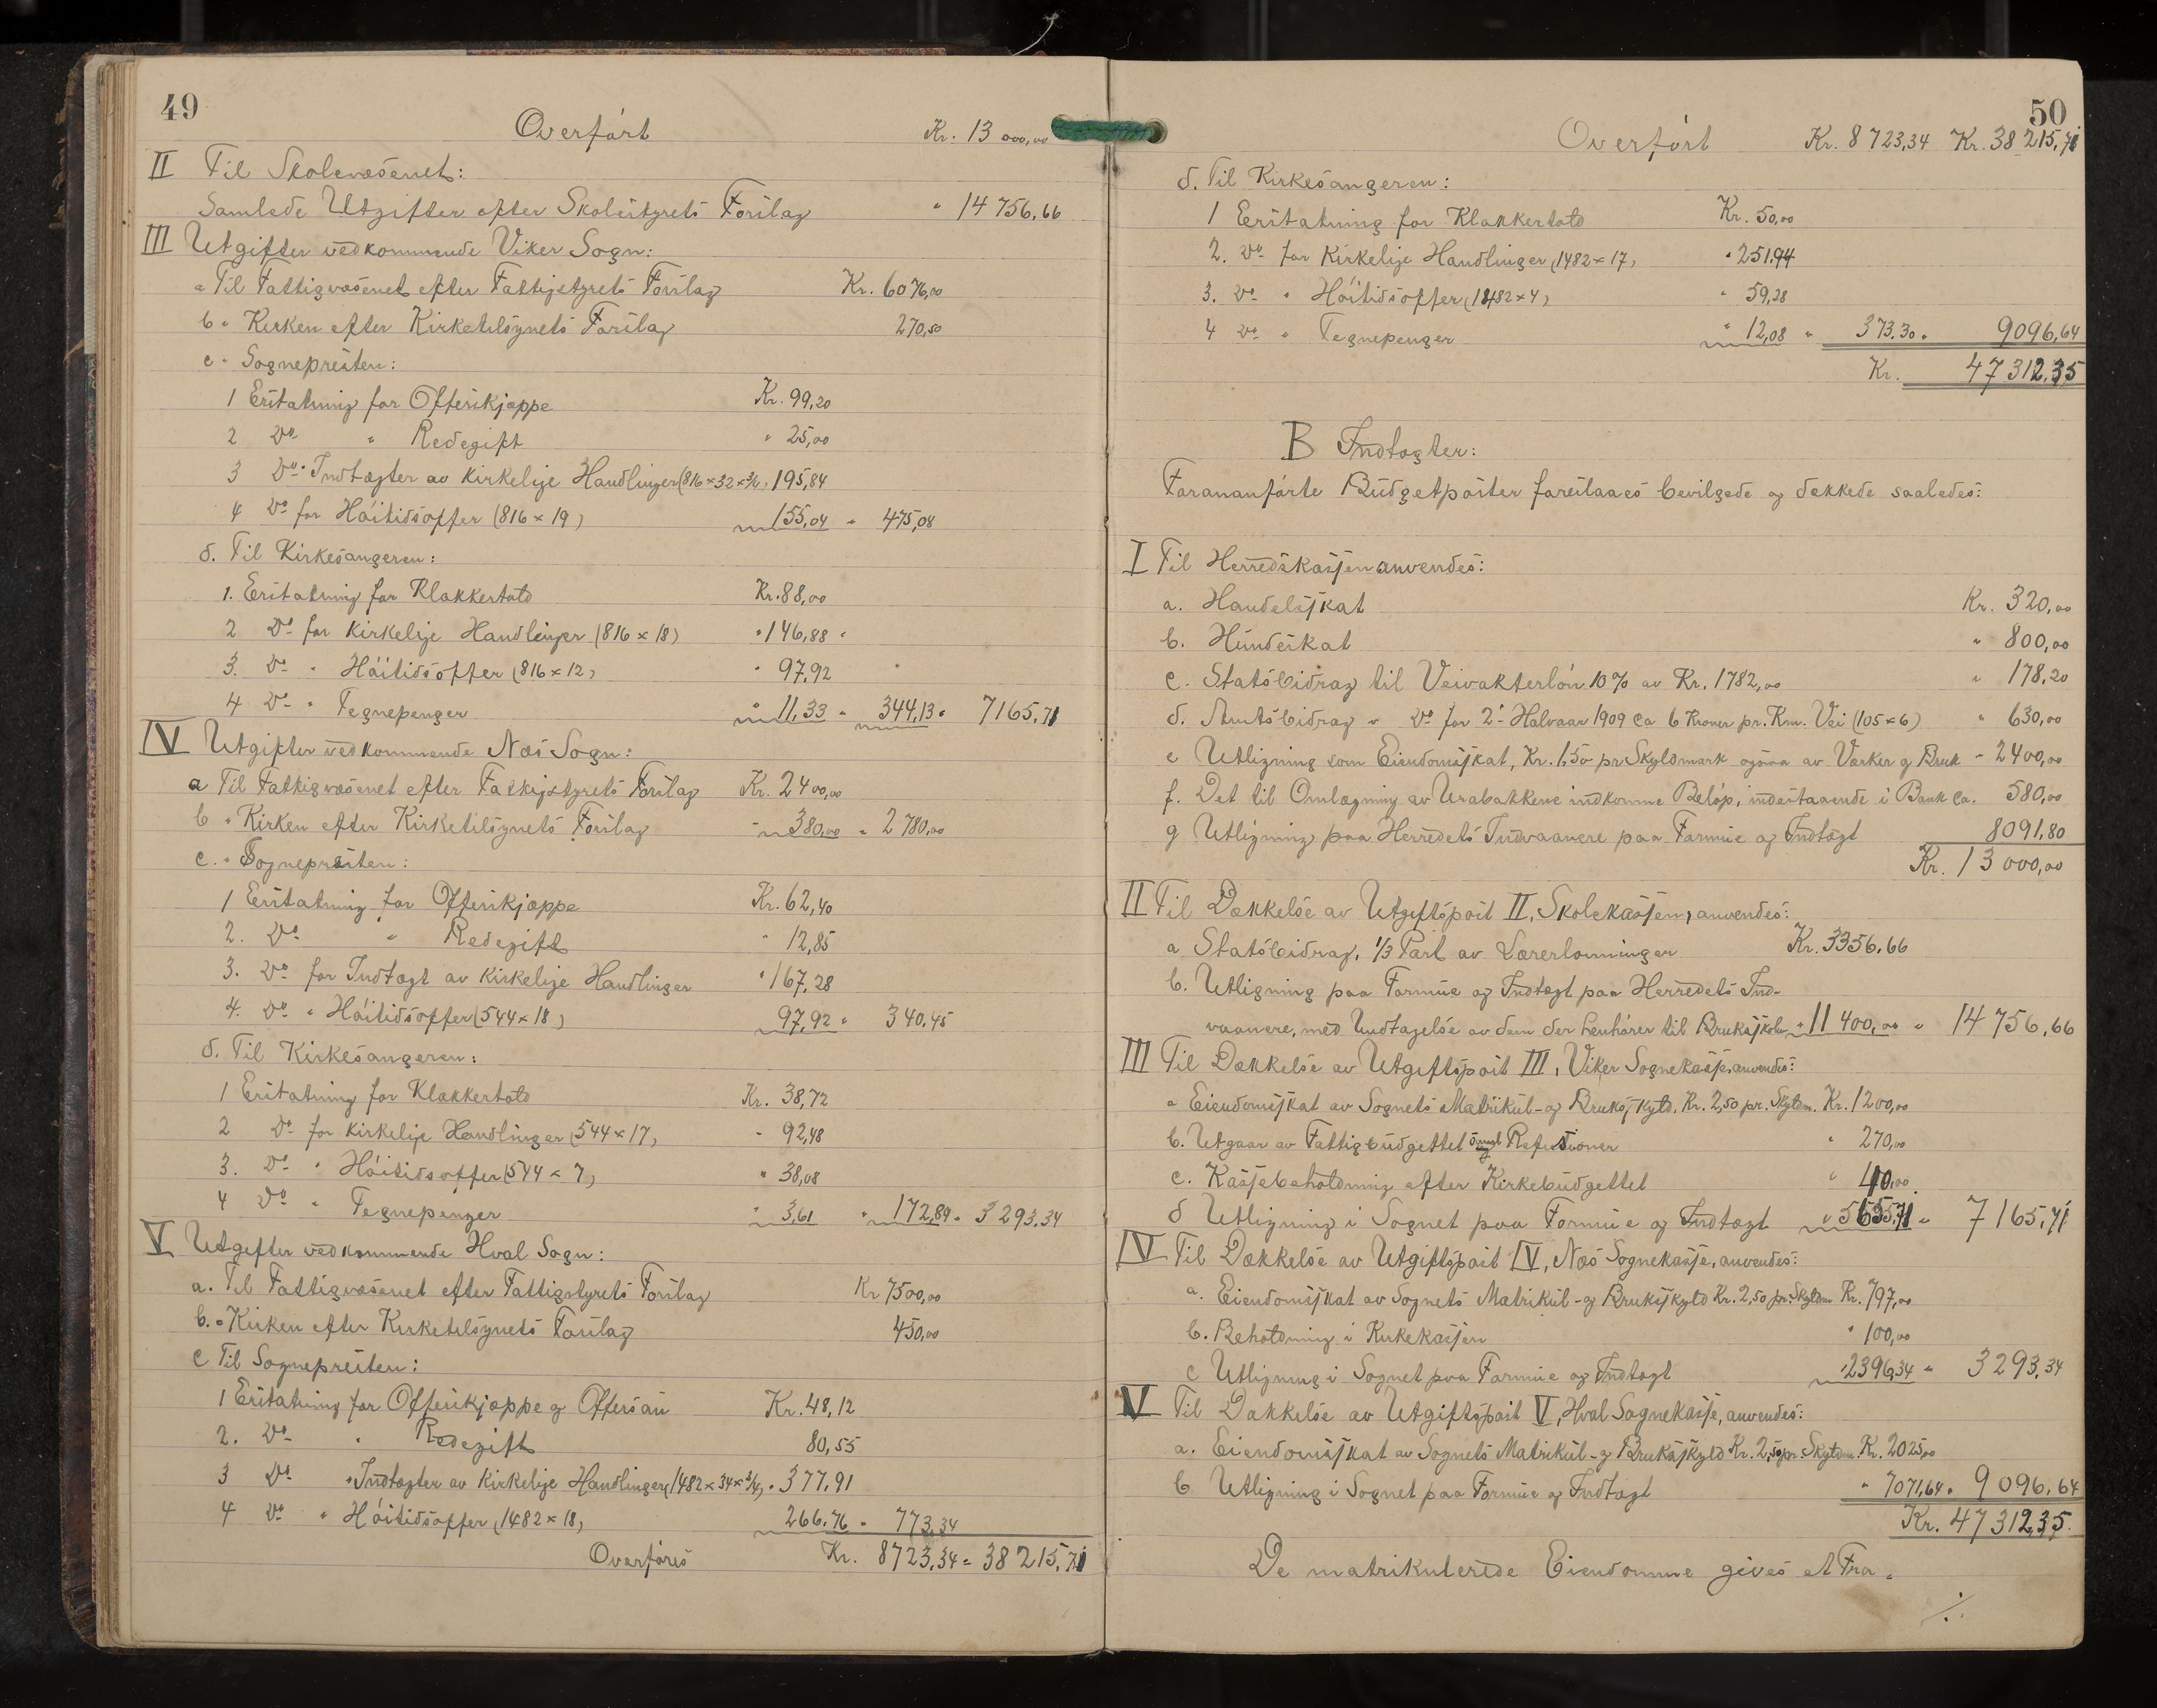 49
Overført Kr. 13 000,00
II Til Skolevæsenet:
Samlede Utgifter efter Skolestyrets Forslag " 14 756,66
III Utgifter vedkommende Viker Sogn:
a Til Fattigvæsenet efter Fattigstyrets Forslag Kr. 6076,00
b " Kirken efter Kirketilsynets Forslag 270,50
c " Sognepresten:
1 Erstatning for Offerskjæppe Kr. 99,20
2 Do " Redegift " 25,00
3 Do " Indtægter av kirkelige Handlinger (816 × 32 × 3/4) 195,84
4 Do for Høitidsoffer (816 × 19) 155,04 " 475,08
d. Til Kirkesangeren:
1. Erstatning for Klokkertold Kr. 88,00
2 Do for kirkelige Handlinger (816 × 18) " 146,88 "
3. Do " Høitidsoffer (816 × 12) " 97,92
4 Do " Tegnepenger " 11,33 " 344,13 " 7165,71
IV Utgifter vedkommende Næs Sogn:
a Til Fattigvæsenet efter Fattigstyrets Forslag Kr. 2400,00
b " Kirken efter Kirketilsynets Forslag " 380,00 " 2 780,00
c. " Sognepresten:
1 Erstatning for Offerskjæppe Kr. 62,40
2. Do " Redegift " 12,85
3. Do for Indtægt av kirkelige Handlinger " 167,28
4. Do " Høitidsoffer (544 × 18) 97,92 " 340,45
d. Til Kirkesangeren:
1 Erstatning for Klokkertold Kr. 38,72
2 Do for kirkelige Handlinger (544 × 17) " 92,48
3. Do " Høitidsoffer (544 × 7) " 38,08
4 Do " Tegnepenger " 3,61 " 172,89 " 3 293,34
V Utgifter vedkommende Hval Sogn:
a. Til Fattigvæsenet efter Fattigstyrets Forslag Kr 7500,00
b. " Kirken efter Kirketilsynets Forslag 450,00
c Til Sognepresten:
1 Erstatning for Offerskjæppe og Offersau Kr. 48,12
2. Do " Redegift 80,55
3 Do " Indtægter av kirkelige Handlinger (1482 × 34 × 3/4) " 377,91
4 Do " Høitidsoffer (1482 × 18) 266,76 " 773,34
Overføres Kr. 8723,34 " 38 215,71
50
Overført Kr. 8 723,34 Kr. 38 215,71
d. Til Kirkesangeren:
1 Erstatning for Klokkertold Kr. 50,00
2. Do for kirkelige Handlinger (1482 × 17) " 251,94
3. Do " Høitidsoffer (1482 × 4) " 59,28
4 Do " Tegnepenger " 12,08 " 373,30 " 9096,64
Kr. 47 312,35
B Indtægter:
Forananførte Budgetposter foreslaaes bevilgede og dækkede saaledes:
I Til Herredskassen anvendes:
a. Handelsskat Kr. 320,00
b. Hundeskat " 800,00
c. Statsbidrag til Veivokterløn 10% av Kr. 1782,00 " 178,20
d. Amtsbidrag " Do for 2' Halvaar 1909 ca 6 Kroner pr. Km. Vei (105 × 6) " 630,00
e Utligning som Eiendomsskat, Kr. 1,50 pr Skyldmark ogsaa av Værker og Bruk " 2400,00
f. Det til Omlægning av Urabakkene indkomne Beløp, indestaaende i Bank ca. 580,00
g Utligning paa Herredets Indvaanere paa Formue og Indtægt 8091,80
Kr. 13 000,00
II Til Dækkelse av Utgiftspost II, Skolekassen, anvendes:
a Statsbidrag, 1/3 Part av Lærerlønninger Kr. 3356,66
b. Utligning paa Formue og Indtægt paa Herredets Ind-
vaanere, med Undtagelse av dem der henhører til Bruksskolen " 11 400,00 " 14 756,66
III Til Dækkelse av Utgiftspost III, Viker Sognekasse, anvendes:
a Eiendomsskat av Sognets Matrikul- og Bruksskyld, Kr. 2,50 pr. Skyldm. Kr. 1200,00
b. Utgaar av Fattigbudgettet Refusioner " 270,00
c. Kassebeholdning efter Kirkebudgettet " 40,00
d Utligning i Sognet paa Formue og Indtægt " 5655,71 " 7165,71
IV Til Dækkelse av Utgiftspost IV, Næs Sognekasse, anvendes:
a. Eiendomsskat av Sognets Matrikul- og Bruksskyld Kr. 2,50 pr. Skyldm Kr. 797,00
b. Beholdning i Kirkekassen " 100,00
c Utligning i Sognet paa Formue og Indtægt " 2396,34 " 3 293,34
V Til Dækkelse av Utgiftspost V, Hval Sognekasse, anvendes:
a. Eiendomsskat av Sognets Matrikul- og Bruksskyld Kr. 2,50 pr. Skyldm. Kr. 2025,00
b Utligning i Sognet paa Formue og Indtægt " 7071,64 " 9 096,64
Kr. 47 312,35.
De matrikulerede Eiendomme gives et Fra-